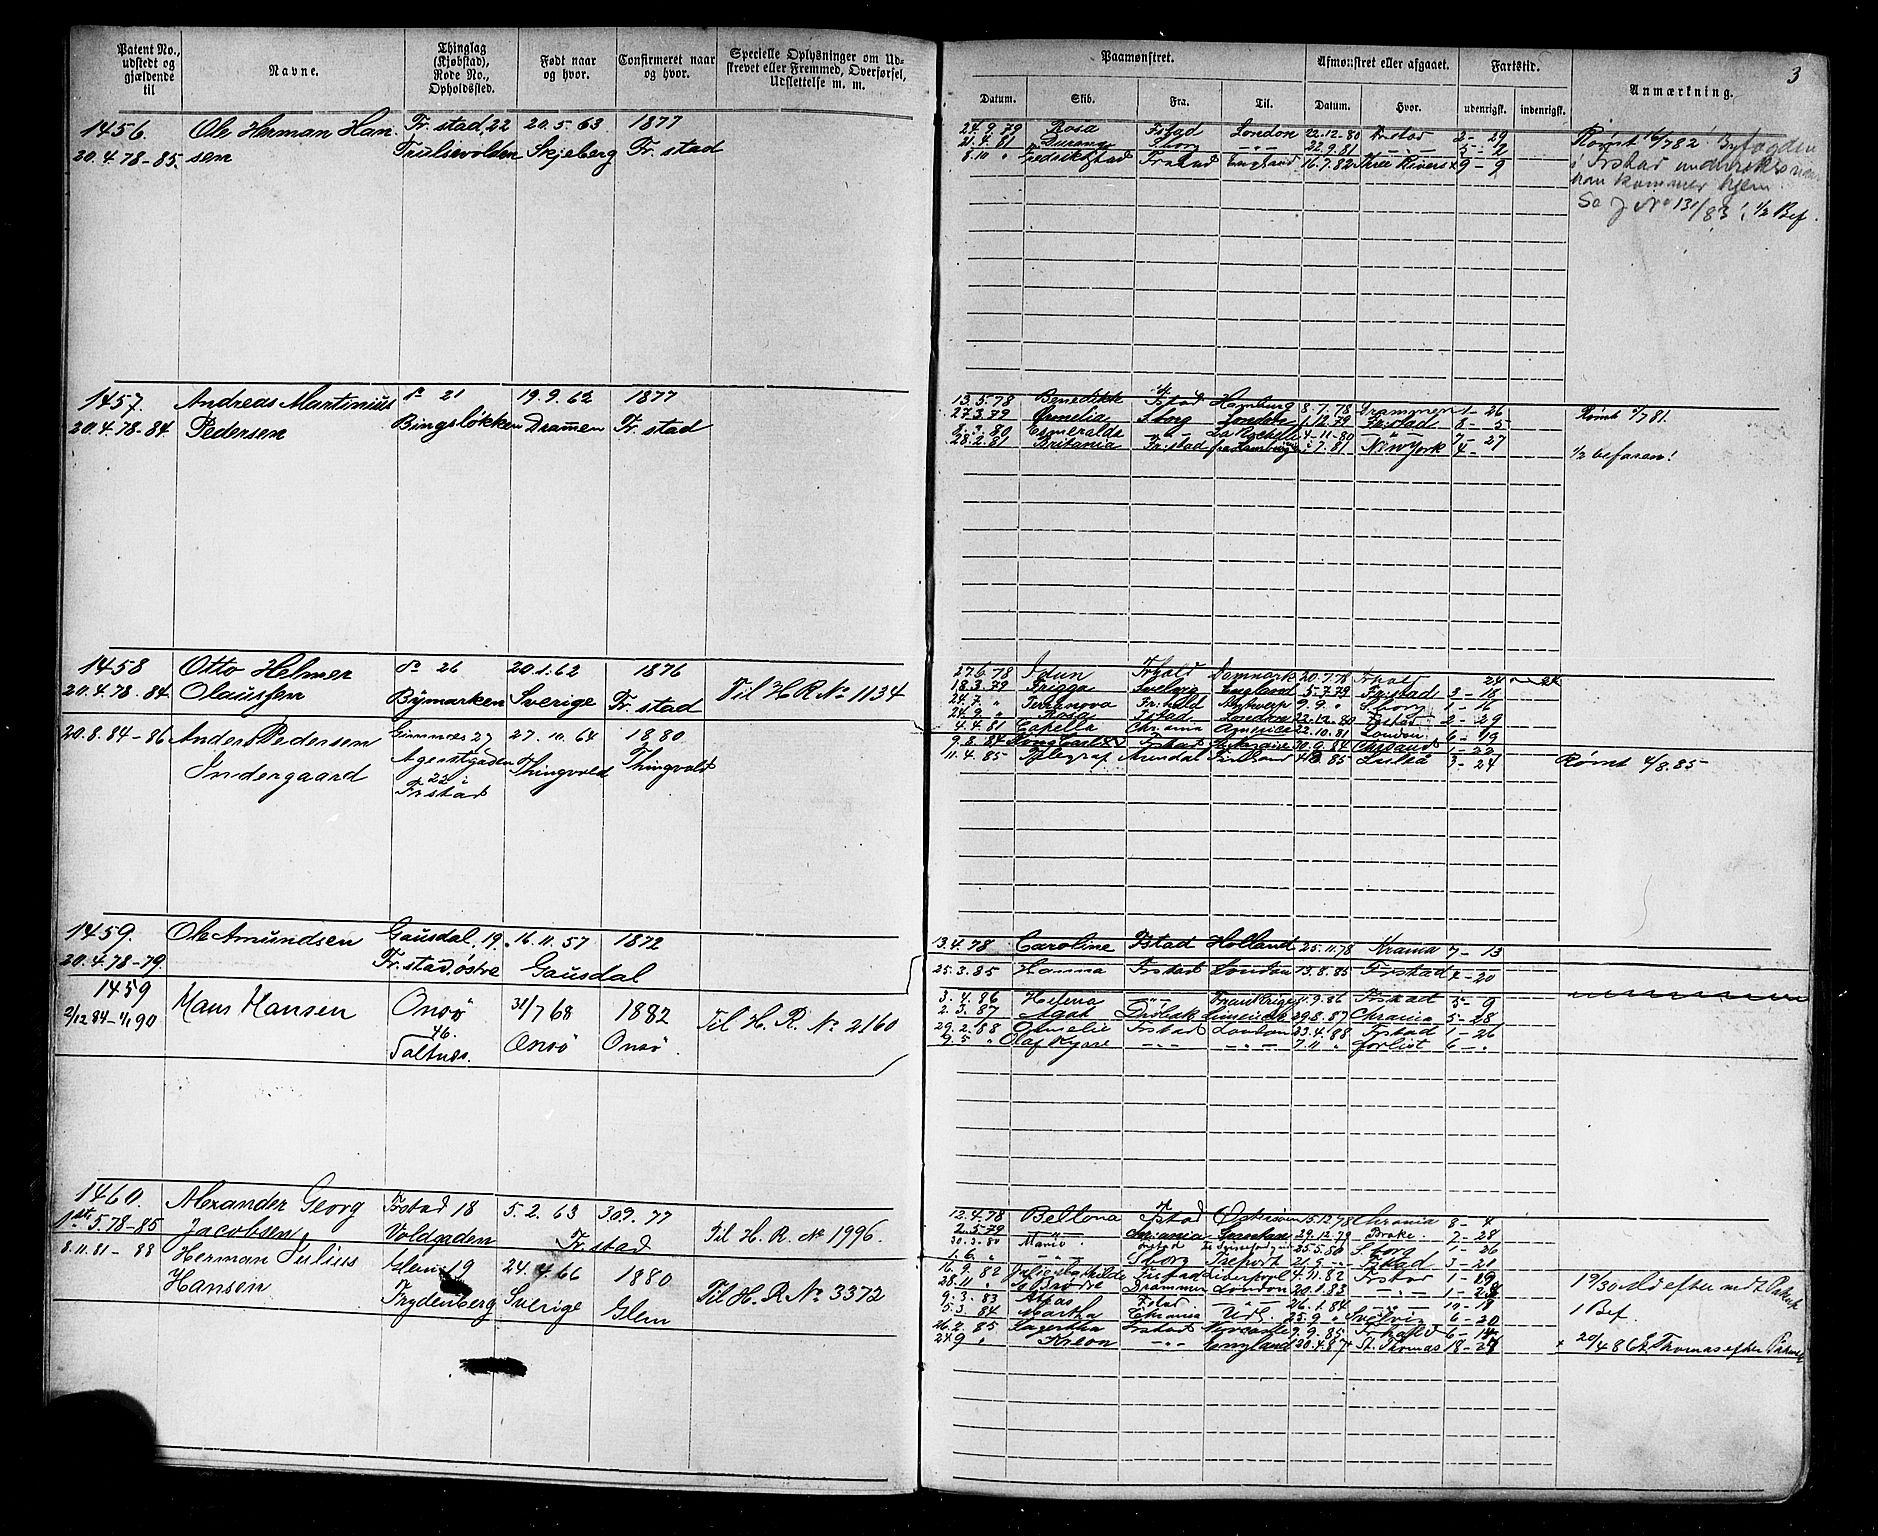 3
Patent No., udstedt og gjældende til | Navne. | Thinglag (Kjøbstad), Rode No., Opholdssted. | Født naar og hvor. | Confirmeret naar og hvor. | Specielle Oplysninger om Udskrevet eller Fremmed, Overførsel, Udslettelse m. m.
Paamønstret. | Afmønstret eller afgaaet. | Fartstid. | Anmærkning.
Datum. | Skib. | Fra. | Til. | Datum. | Hvor. | udenrigsk. | indenrigsk.
1456. | Ole Herman Han | Fr.stad, 22 | 20.5.63 | 1877
20.4.78-85. | sen | Trulsevolden | Skjeberg | Fr.stad
24.9.79 | Rosa | Fstad | London | 22.12.80 | Frstad | 2-29
21.4.81 | Sborg | -"- | 22.9.81 | -"- | 5-2
8.10 " | Fredrikstad | Frstad | England | 16.7.82 | Three Rivers x | 9-9
Rømt 16/782
i Frstad
han kommer hjem
131/83 1/2 Bef.
1457. | Andreas Martinius | do 21 | 19.9.62 | 1877
20.4.78-84 | Pedersen | Bingsløkken | Dramen | Fr.stad
13.5.78 | Benedikte | Fstad | Hamburg | 8.7.78 | Drammen | 1-26
27.3.79 | Ornelia | Sborg | London | 1.12.79 | Fr.stad | 8-5
8.3.80 | Esmeralda | -"- | La Rochelle | 4-11-80 | -"- | 7-27
28.2.81 | Britania | Fr.stad | 7.81 | New York | 4-
Rømt 781.
1/2 befaren!
1458 | Otto Helmer | do 26 | 20.1.62 | 1876
20.4.78-84. | Olaussen | Bymarken | Sverige | Fr.stad | Til H.R. No 1134
27.6.78 | Idun | Frhald | Danmark | 20.7.78 | Frhald | 24
18.3.79 | Frigga | England | 5.7.79 | Frstad | 3-18
24.7. " | Terranova | Fr.hald | Antwerp | 9.9. " | Sborg | 1-16
24.9. " | Rosa | Fstad | London | 22.12.80 | Frstad | 2-29
4.4.81 | Capella | Chrania | America | 22.10.81 | London | 6-19
20.8.84-86 | Anders Pedersen | 27 | 27.10.64 | 1880
Indergaard | Thingvold | Thingvold
22
Frstad
9.8.84 | Frstad | 30.9.84 | 1-22
11.4.85 | Telegraf | Arendal | 85 | 3-24 | Rømt 4/8.85
1459. | Ole Amundsen | Gausdal, 19. | 16.11.57 | 1872
20.4.78-79. | Fr.stad, østre | Gausdal
13.4.78 | Caroline | Fstad | Holland | 25.11.78 | Krania | 7-13
1459 | Maus Hansen | Onsø | 31/7 68 | 1882 | Til H.R. No 2160
2/12 84-1/1 90 | 46. | Onsø | Onsø
25.3.85 | Hanna | Frstad | London | 13.8.85 | Frstad | 4-20
3.4.86 | Helena | -"- | Frankrige | 9.86 | Frstad | 5-9
2.3.87 | Agat | Drøbak | Limerick | 29.8.87 | Chrania | 5-28
29.2.88 | Frstad | London | 23.4.88 | Frstad | 1-26
9.5 " | Olaf Kyrre | -"- | -"- | 7.11 " | forlist | 6-"
1460. | Alexander Georg | Frstad 18 | 5.2.63 | 30.9.77
1ste 5.78-85 | Jacobsen | Voldgaden | Fr.stad | Til H.R. No 1996.
12.4.78 | Bellona | Fstad | 15.12.78 | Chrania | 8-4
2.5.79 | 29.12.79 | Brake. | 7-28
30.3.80 | Mario | Frstad | 25.5.80 | Sborg | 1-26
1.6. " | -"- | Sborg | Treport | Frstad | 3-21
8.11.81-88 | Herman Julius | Glem 19 | 24.4.66 | 1880 | Til H.R. No 3372
Hansen | Frydenberg | Sverige | Glem
16.9.82 | Frstad | Liverpool | 4.11.82 | Frstad | 1-19
28.11 " | Drammen | London | 20.1.83 | -"- | 1-24
9.3.83 | Atlas | Fstad | -"- | 26.1.84 | -"- | 10-18
15.3.84 | Martha | Chrania | Udl. | 25.9 " | Svelvig | 6-20
26.2.85 | Lagertha | Frstad | 9.9.85 | Frhald | 6-14
24.9 " | Kreon | -"- | England | 20.4.87 + | St. Thomas | 18-27
1 Bef.
+ 20/4 86 St. Thomas efter